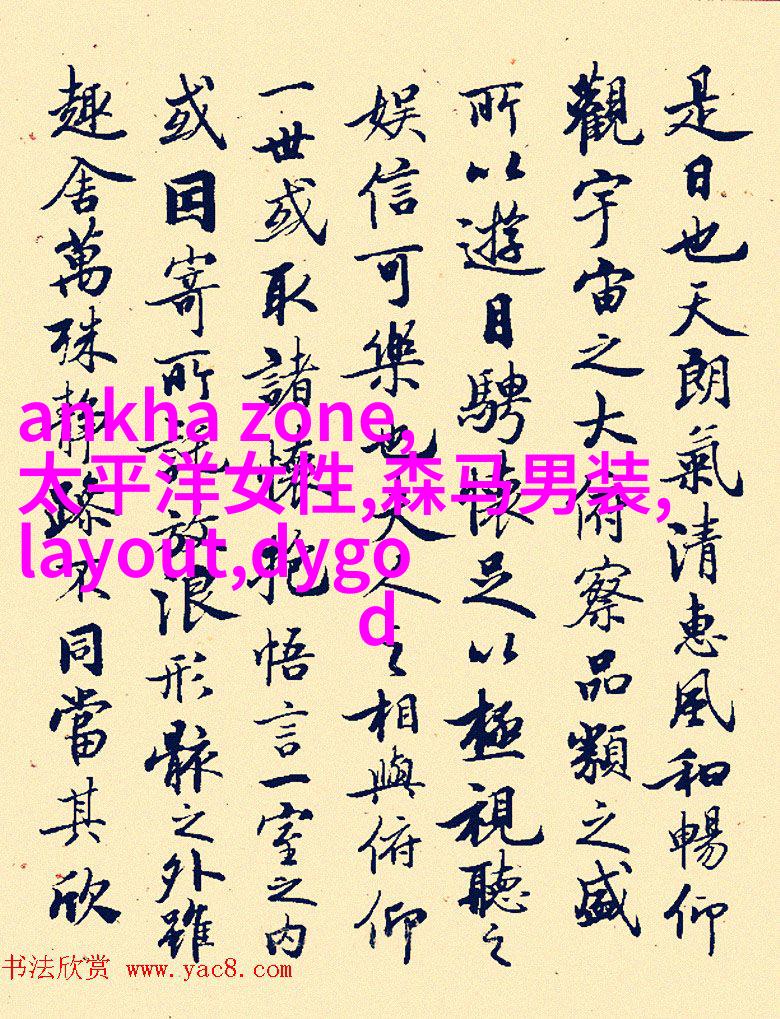 是日也天朗氣清惠風和暢仰
觀宇宙之大俯察品類之盛
所以遊目騁懷足以極視聽之
娛信可樂也夫人之相與俯仰
一世或取諸懷抱悟言一室之內
或因寄所託放浪形骸之外雖
趣舍萬殊靜躁不同當其欣
ankha zone,
太平洋女性,森马男装,
layout,dygo
d
书法欣赏 www.yac8.com